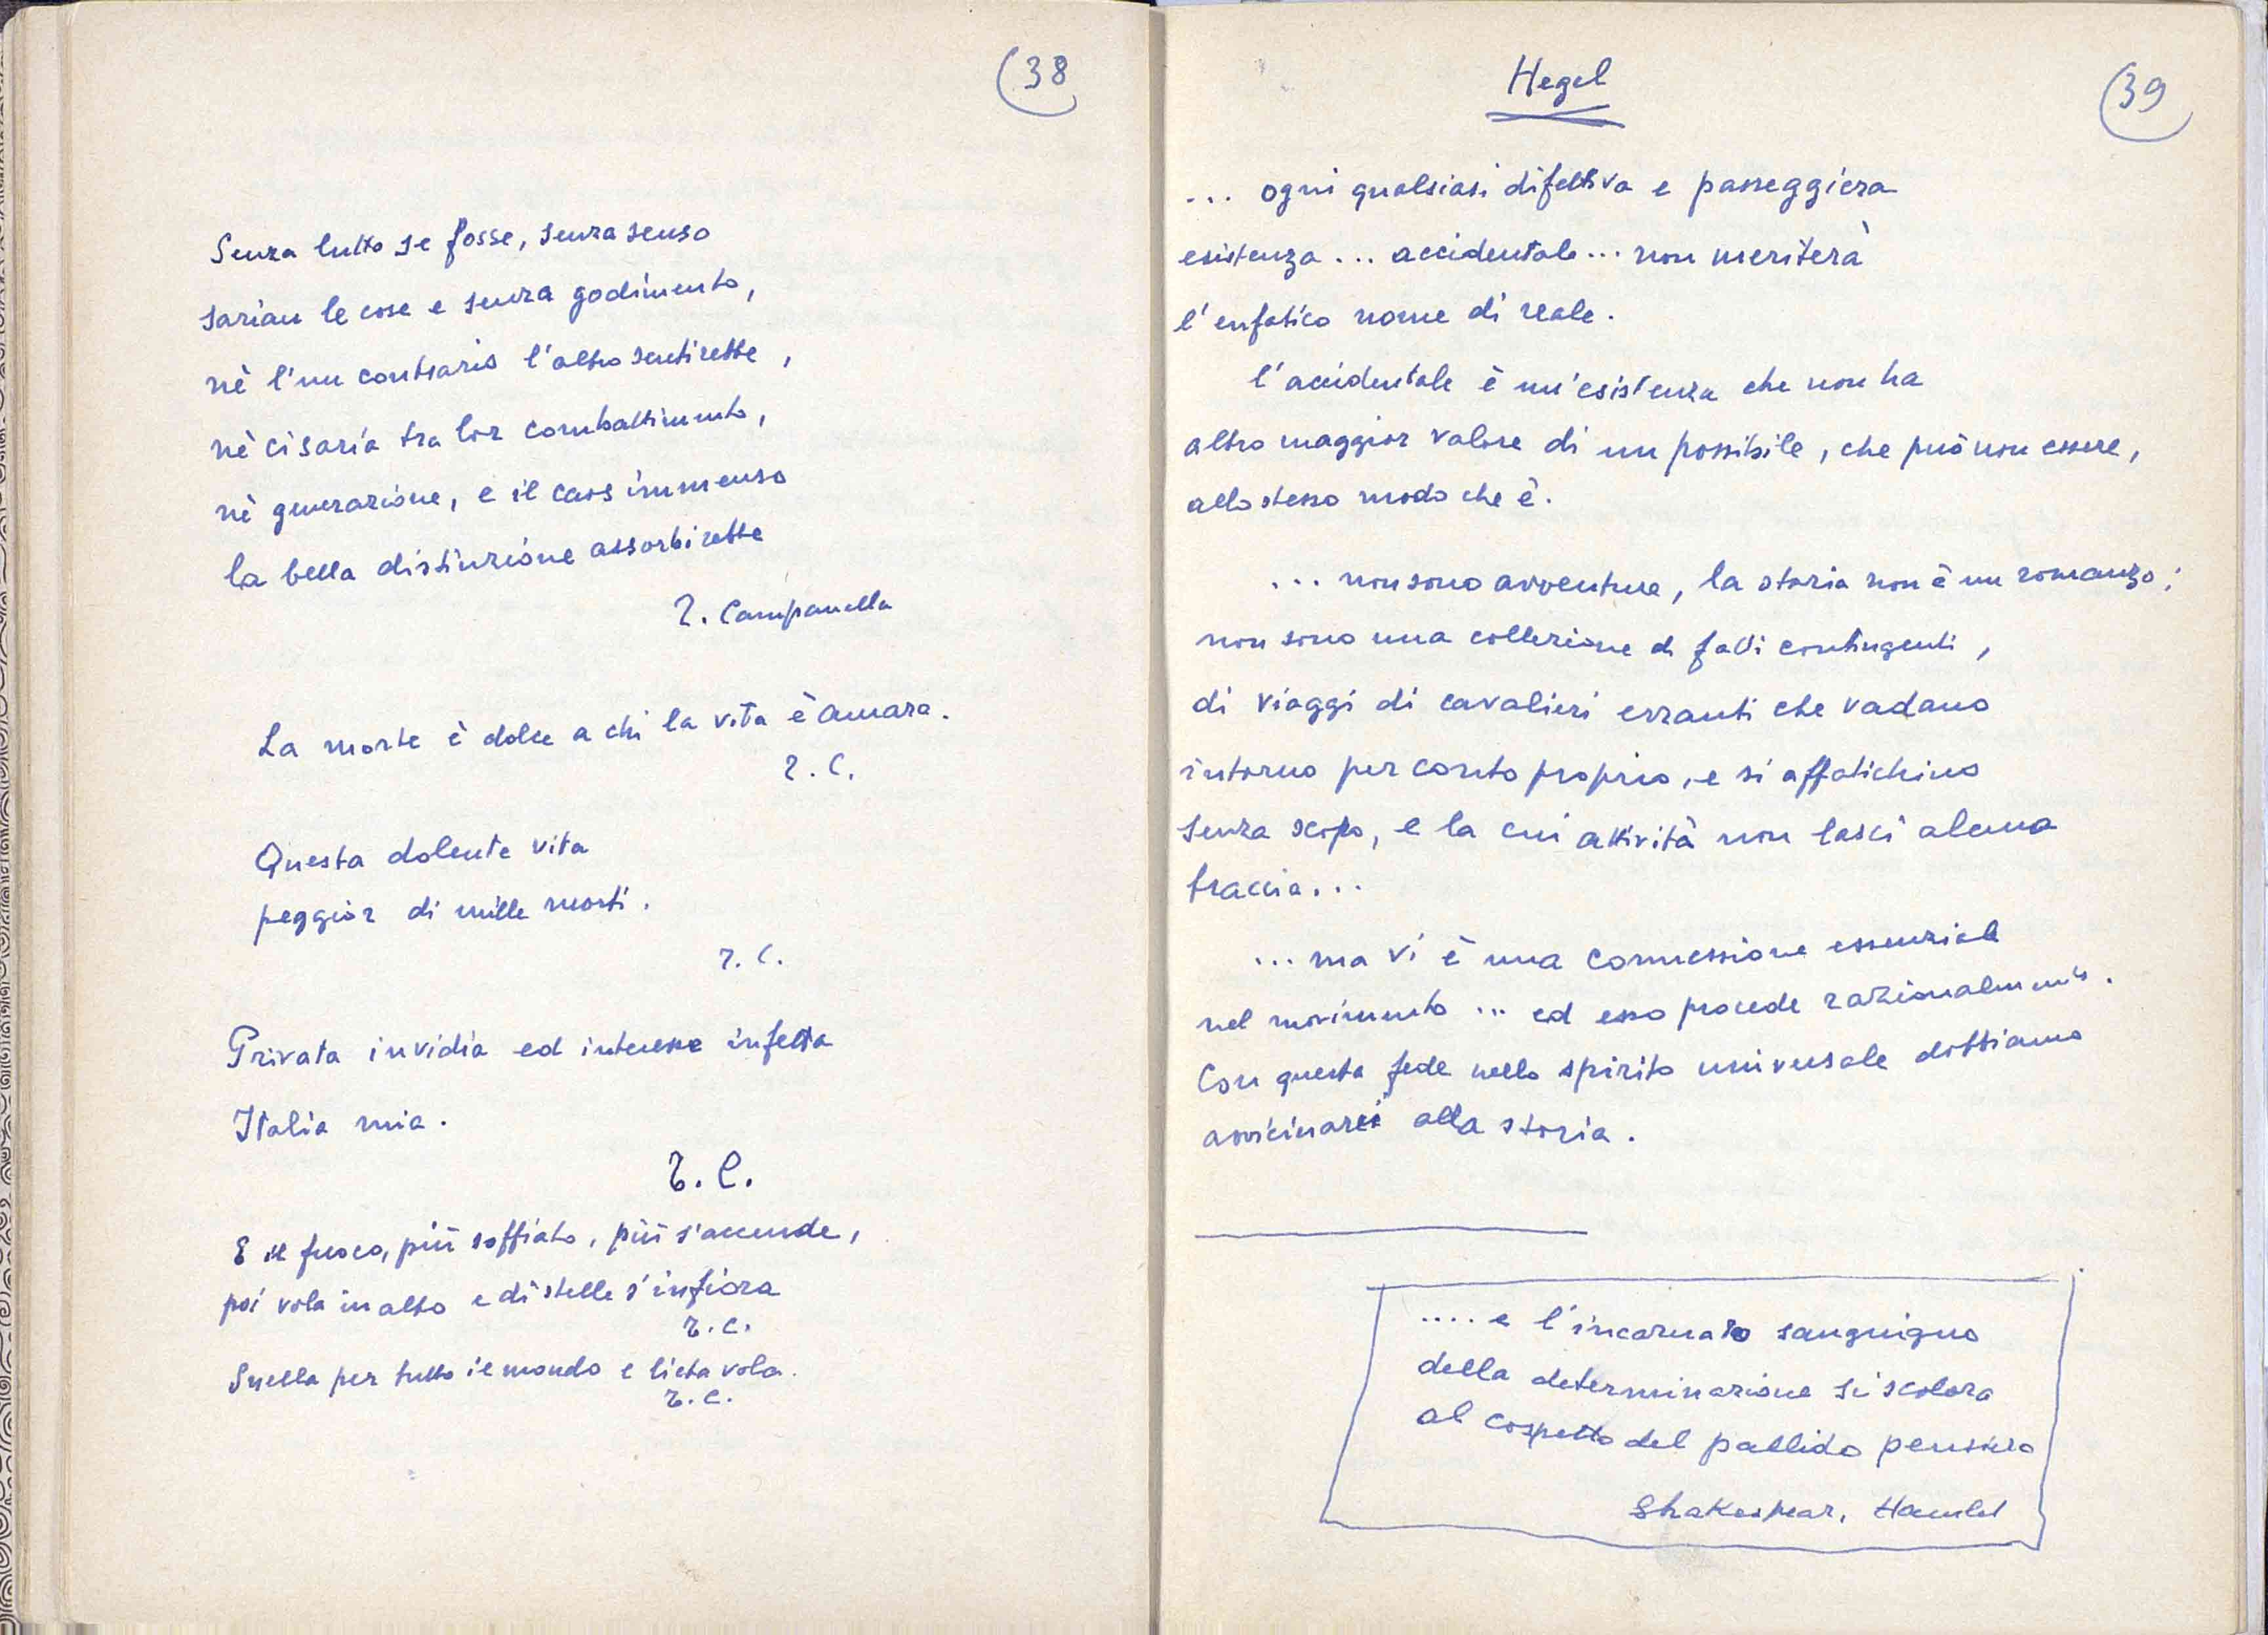 38
Senza lutto se fosse, senza senso
sarian le cose e senza godimento,
nè l'un contrario l'altro sentirebbe,
nè ci saria tra lor combattimento,
nè generazione, e il caos immenso
la bella distinzione assorbirebbe
T. Campanella
La morte è dolce a chi la vita è amara.
T. C.
Questa dolente vita
peggior di mille morti.
T. C.
Privata invidia ed interesse infetta
Italia mia.
T. C.
E il fuoco, più soffiato, più s'accende,
poi vola in alto e di stelle s'infiora
T. C.
Snella per tutto il mondo e lieta vola.
T. C.
Hegel
39
... ogni qualsiasi difettiva e passeggiera
esistenza ... accidentale ... non meriterà
l'enfatico nome di reale.
l'accidentale è un'esistenza che non ha
altro maggior valore di un possibile, che può non essere,
allo stesso modo che è.
... non sono avventure, la storia non è un romanzo;
non sono una collezione di fatti contingenti,
di viaggi di cavalieri erranti che vadano
intorno per conto proprio, e si affatichino
senza scopo, e la cui attività non lasci alcuna
traccia...
... ma vi è una connessione essenziale
nel movimento ... ed esso procede razionalmente.
Con questa fede nello spirito universale dobbiamo
avvicinarci alla storia.
.... e l'incarnato sanguigno
della determinazione si scolora
al cospetto del pallido pensiero
Shakespear, Hamlet